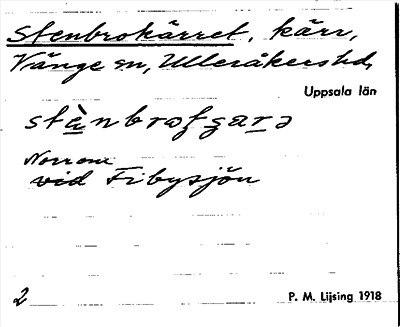 Stenbrokärret, kärr,
Vänge sn, Ulleråkers hd,
Uppsala län
Norr om
vid Fibysjön
2
P. M. Lijsing 1918